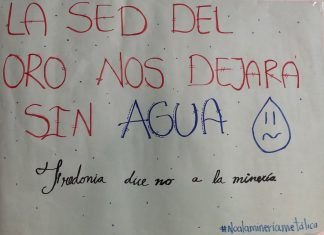 LA SED DEL
ORO NOS DEJARA
SIN AGUA
Fredonia dice no a la minería
#Noalamineríametálica